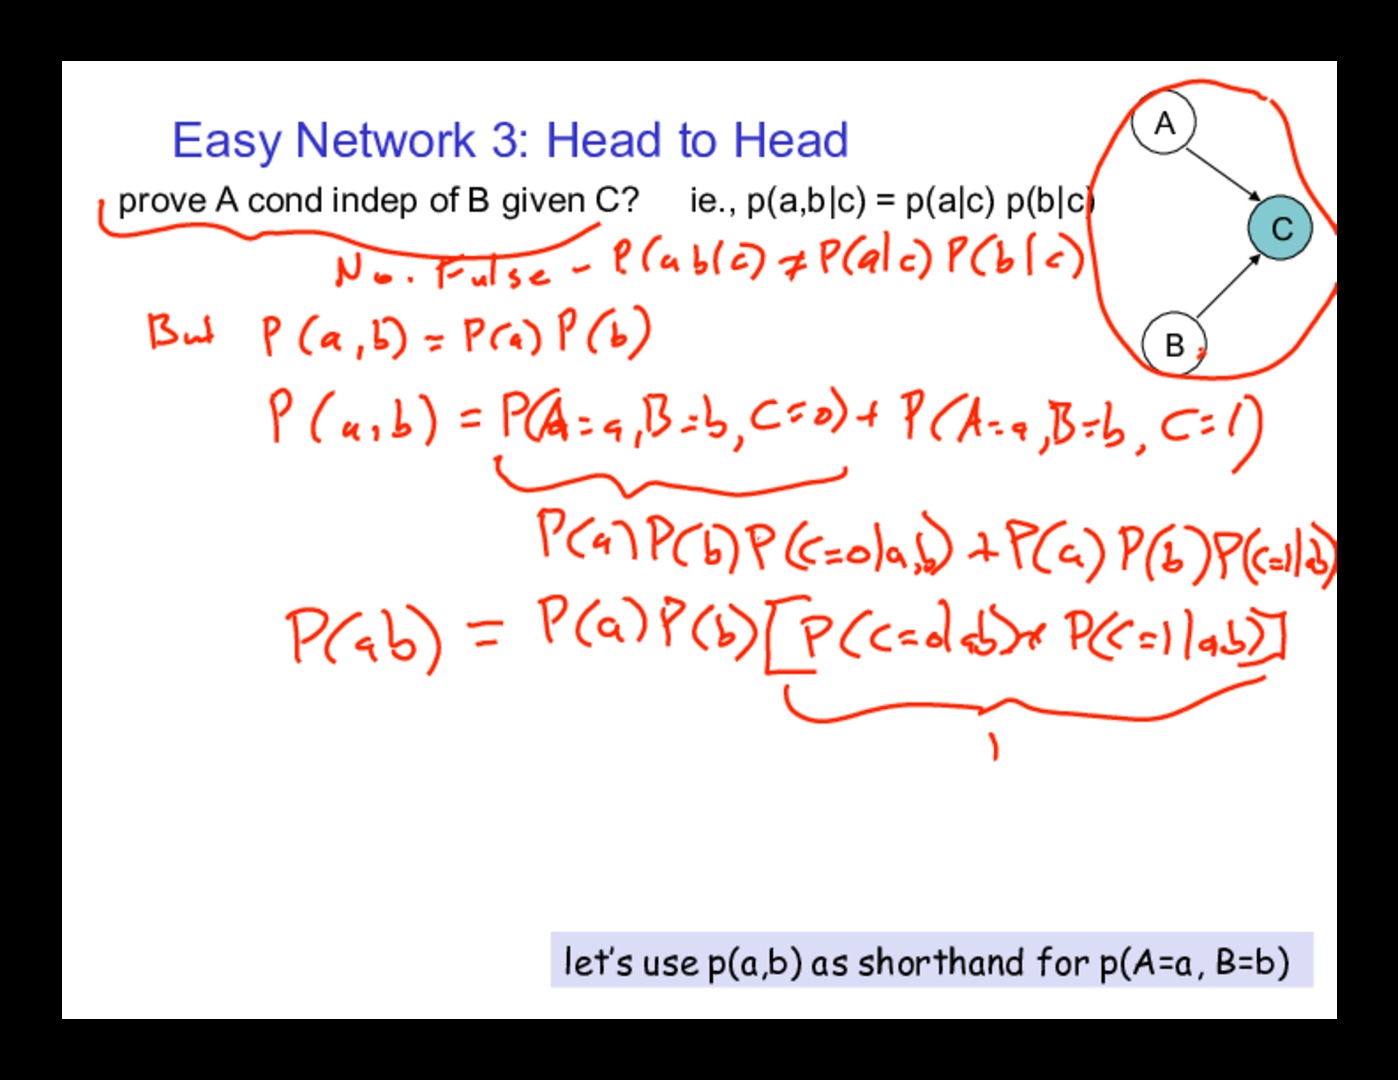 Easy Network 3: Head to Head
A
prove A cond indep of B given C? ie., p(a,b|c) = p(a|c) p(b|c)
C
No. False - P(ab|c) ≠ P(a|c) P(b|c)
But P(a,b) = P(a) P(b)
B
P(a,b) = P(A=a,B=b,C=0) + P(A=a,B=b,C=1)
P(a)P(b)P(C=0|a,b) + P(a)P(b)P(C=1|ab)
P(ab) = P(a)P(b)[P(C=0|ab)+ P(C=1|ab)]
1
let's use p(a,b) as shorthand for p(A=a, B=b)